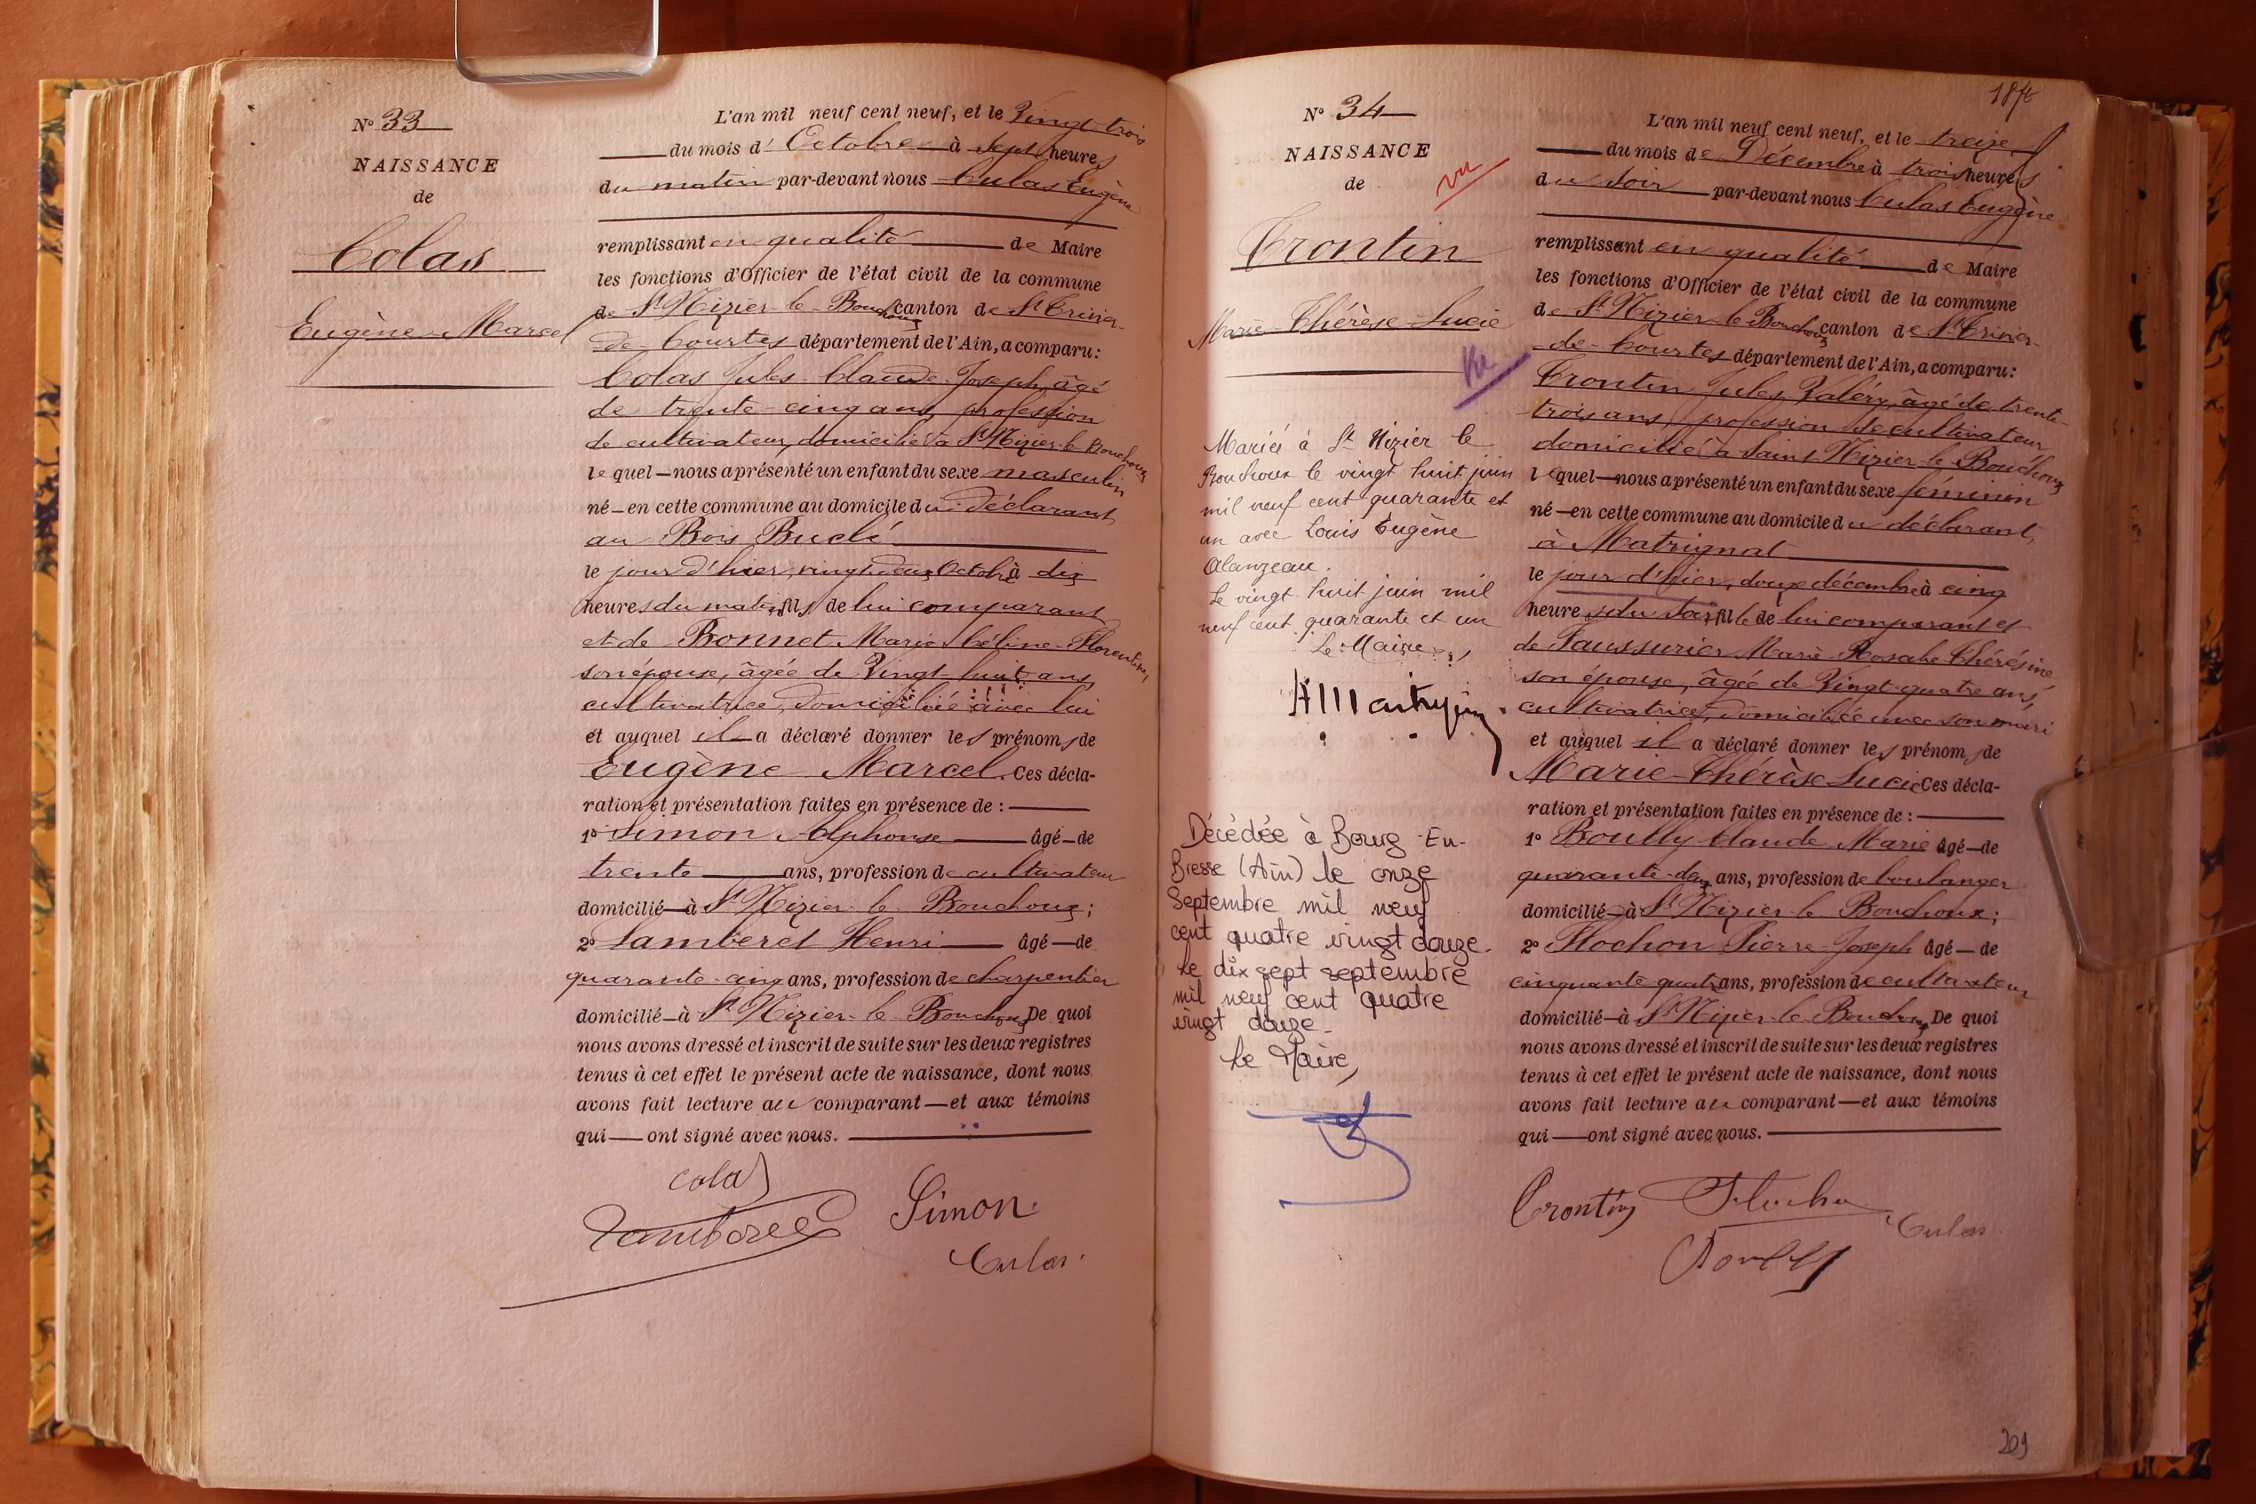 N° 33
NAISSANCE
de
Colas
Eugène Marcel
L'an mil neuf cent neuf, et le Vingt-trois
du mois d' Octobre à sept heures
du matin par-devant nous Culas Eugène
remplissant en qualité de Maire
les fonctions d'Officier de l'état civil de la commune
de St Nizier-le-Bouchoux canton de St Trivier-
de-Courtes département de l'Ain, a comparu :
Colas Jules Claude Joseph, âgé
de trente-cinq ans, profession
de cultivateur, domicilié à St Nizier-le-Bouchoux
lequel nous a présenté un enfant du sexe masculin
né en cette commune au domicile du déclarant
au Bois Buclé
le jour d'hier, vingt-deux Octobre à dix
heures du matin, fils de lui comparant
et de Bonnet Marie Céline Florentine,
son épouse, âgée de Vingt-huit ans,
cultivatrice, domiciliée avec lui
et auquel il a déclaré donner les prénoms de
Eugène Marcel. Ces décla-
ration et présentation faites en présence de :
1° Simon Alphonse âgé de
trente ans, profession de cultivateur
domicilié à St Nizier-le-Bouchoux ;
2° Lamberet Henri âgé de
quarante-cinq ans, profession de charpentier
domicilié à St Nizier-le-Bouchoux De quoi
nous avons dressé et inscrit de suite sur les deux registres
tenus à cet effet le présent acte de naissance, dont nous
avons fait lecture au comparant et aux témoins
qui ont signé avec nous.
Colas
Lamberet Simon
Culas
N° 34
NAISSANCE
de
vu
Trontin
Marie-Thérèse-Lucie
Vu
Mariée à St Nizier le
Bouchoux le vingt huit juin
mil neuf cent quarante et
un avec Louis Eugène
Alanzeau.
Le vingt huit juin mil
neuf cent quarante et un
Le Maire,
Décédée à Bourg-En-
Bresse (Ain) le onze
Septembre mil neuf
cent quatre vingt douze.
Le dix sept septembre
mil neuf cent quatre
vingt douze.
Le Maire,
L'an mil neuf cent neuf, et le treize
du mois de Décembre à trois heures
du soir par-devant nous Culas Eugène
remplissant en qualité de Maire
les fonctions d'Officier de l'état civil de la commune
de St Nizier-le-Bouchoux canton de St Trivier-
de-Courtes département de l'Ain, a comparu :
Trontin Jules Valéry, âgé de trente-
trois ans, profession de cultivateur
domicilié à Saint Nizier-le-Bouchoux
lequel nous a présenté un enfant du sexe féminin
né en cette commune au domicile du déclarant,
à Matrignat
le jour d'hier, douze décembre à cinq
heures du soir, fille de lui comparant et
de Faussurier Marie Rosalie Thérésine
son épouse, âgée de Vingt-quatre ans,
cultivatrice, domiciliée avec son mari
et auquel il a déclaré donner les prénoms de
Marie-Thérèse-Lucie Ces décla-
ration et présentation faites en présence de :
1° Boully Claude Marie âgé de
quarante-deux ans, profession de boulanger
domicilié à St Nizier-le-Bouchoux ;
2° Flochon Pierre-Joseph âgé de
cinquante-quatre ans, profession de cultivateur
domicilié à St Nizier-le-Bouchoux De quoi
nous avons dressé et inscrit de suite sur les deux registres
tenus à cet effet le présent acte de naissance, dont nous
avons fait lecture au comparant et aux témoins
qui ont signé avec nous.
Trontin
Culas
Boully
209